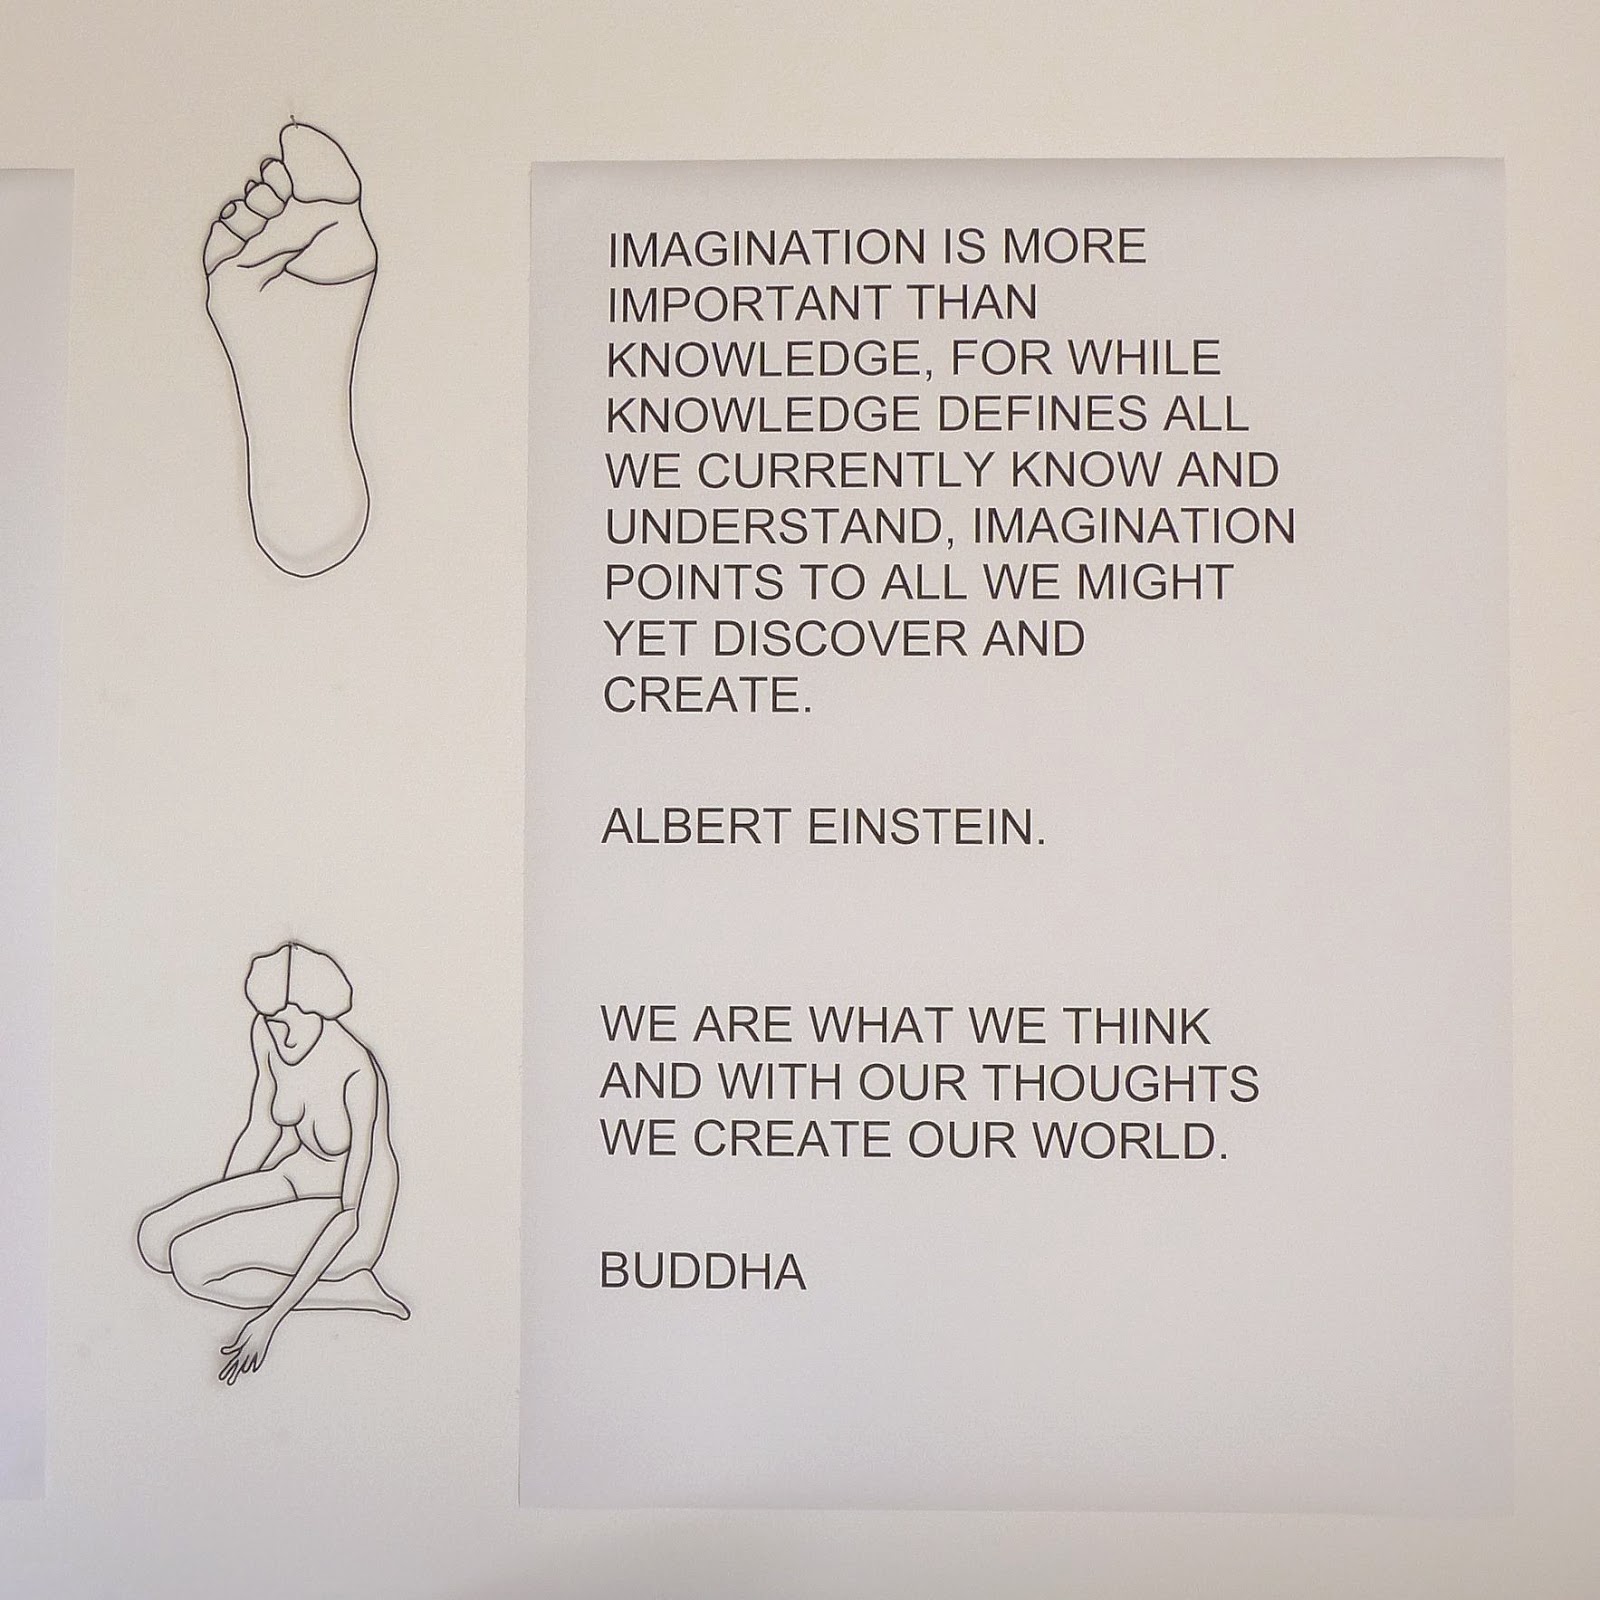 IMAGINATION IS MORE
IMPORTANT THAN
KNOWLEDGE, FOR WHILE
KNOWLEDGE DEFINES ALL
WE CURRENTLY KNOW AND
UNDERSTAND, IMAGINATION
POINTS TO ALL WE MIGHT
YET DISCOVER AND
CREATE.
ALBERT EINSTEIN.
WE ARE WHAT WE THINK
AND WITH OUR THOUGHTS
WE CREATE OUR WORLD.
BUDDHA